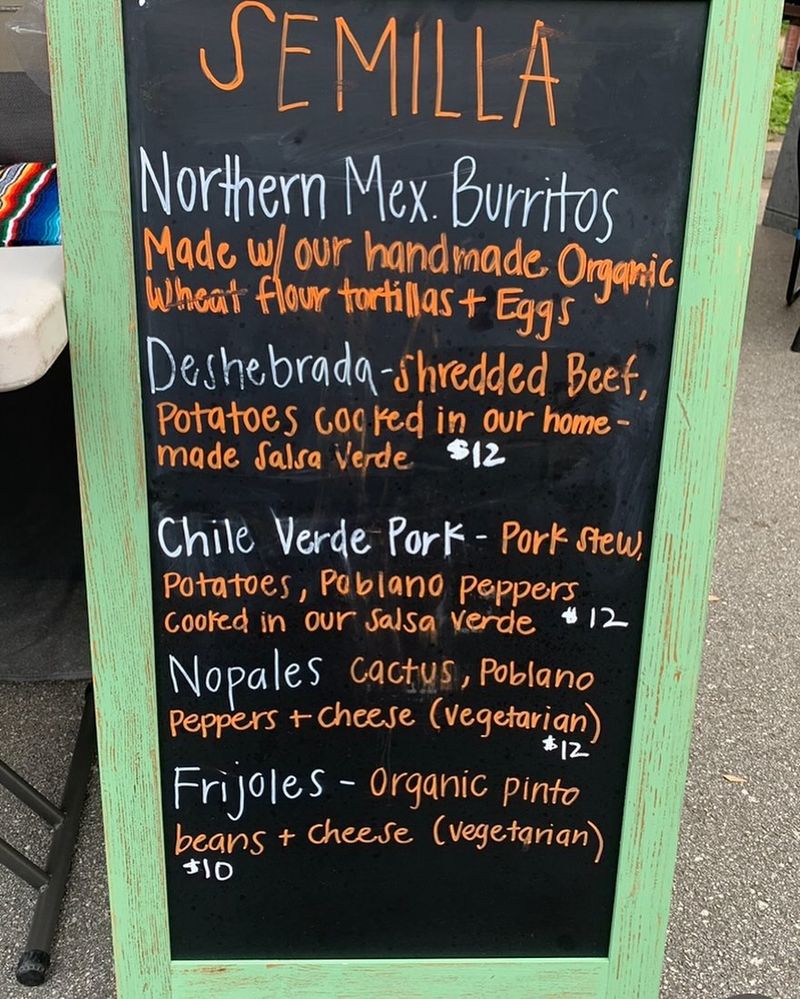 SEMILLA
Northern Mex. Burritos
Made w/ our handmade Organic
Wheat flour tortillas + Eggs
Deshebrada - Shredded Beef,
Potatoes cooked in our home-
made Salsa Verde $12
Chile Verde Pork - Pork Stew,
Potatoes, Poblano Peppers
cooked in our Salsa Verde $12
Nopales Cactus, Poblano
Peppers + cheese (vegetarian)
$12
Frijoles - Organic pinto
beans + cheese (vegetarian)
$10